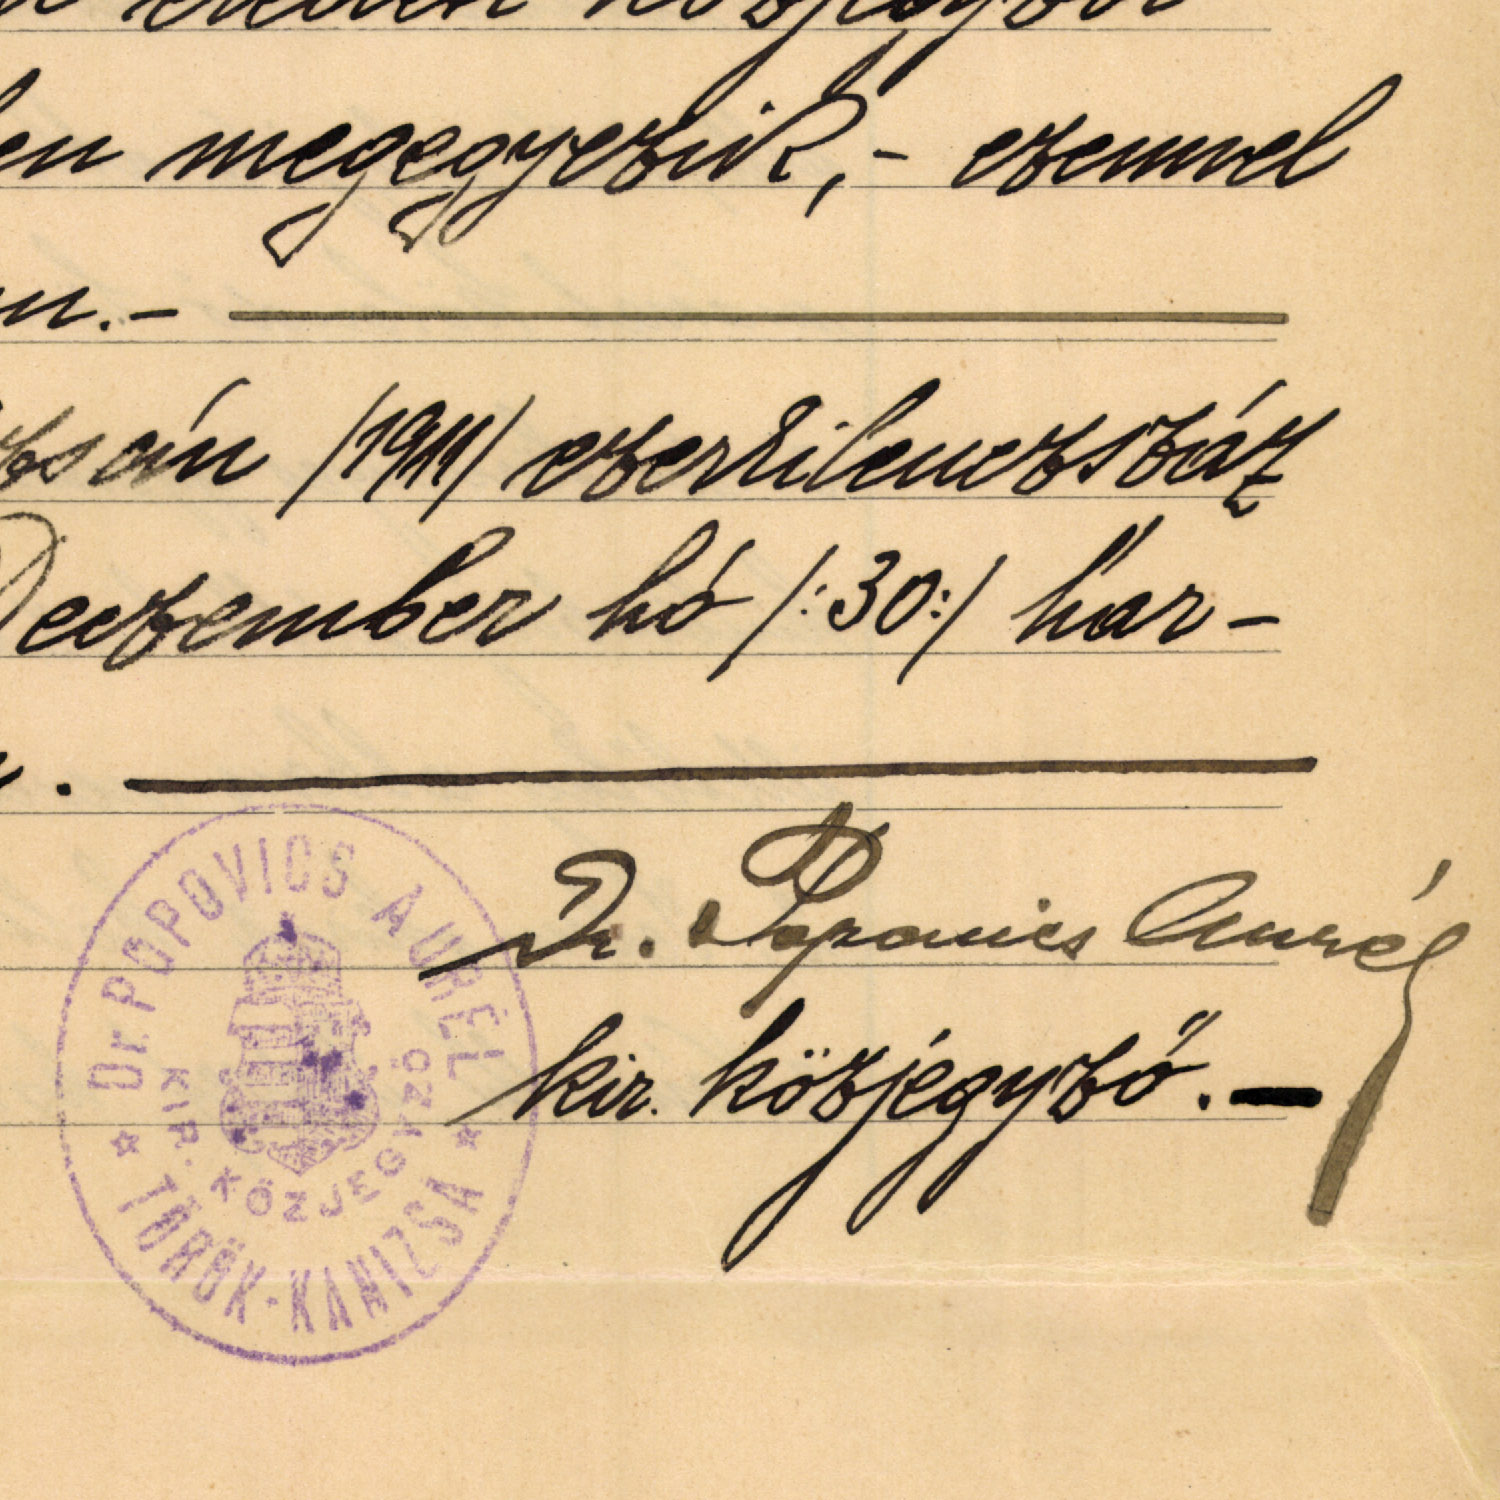 közjegyzői
megegyezik,- ezennel
.-
/1911/ ezerkilenczszáz
Deczember hó /:30:/ har-
.
Dr. Popovics Aurél
kir. közjegyző.-
Dr. POPOVICS AURÉL
KIR. KÖZJEGYZŐ
TÖRÖK-KANIZSA